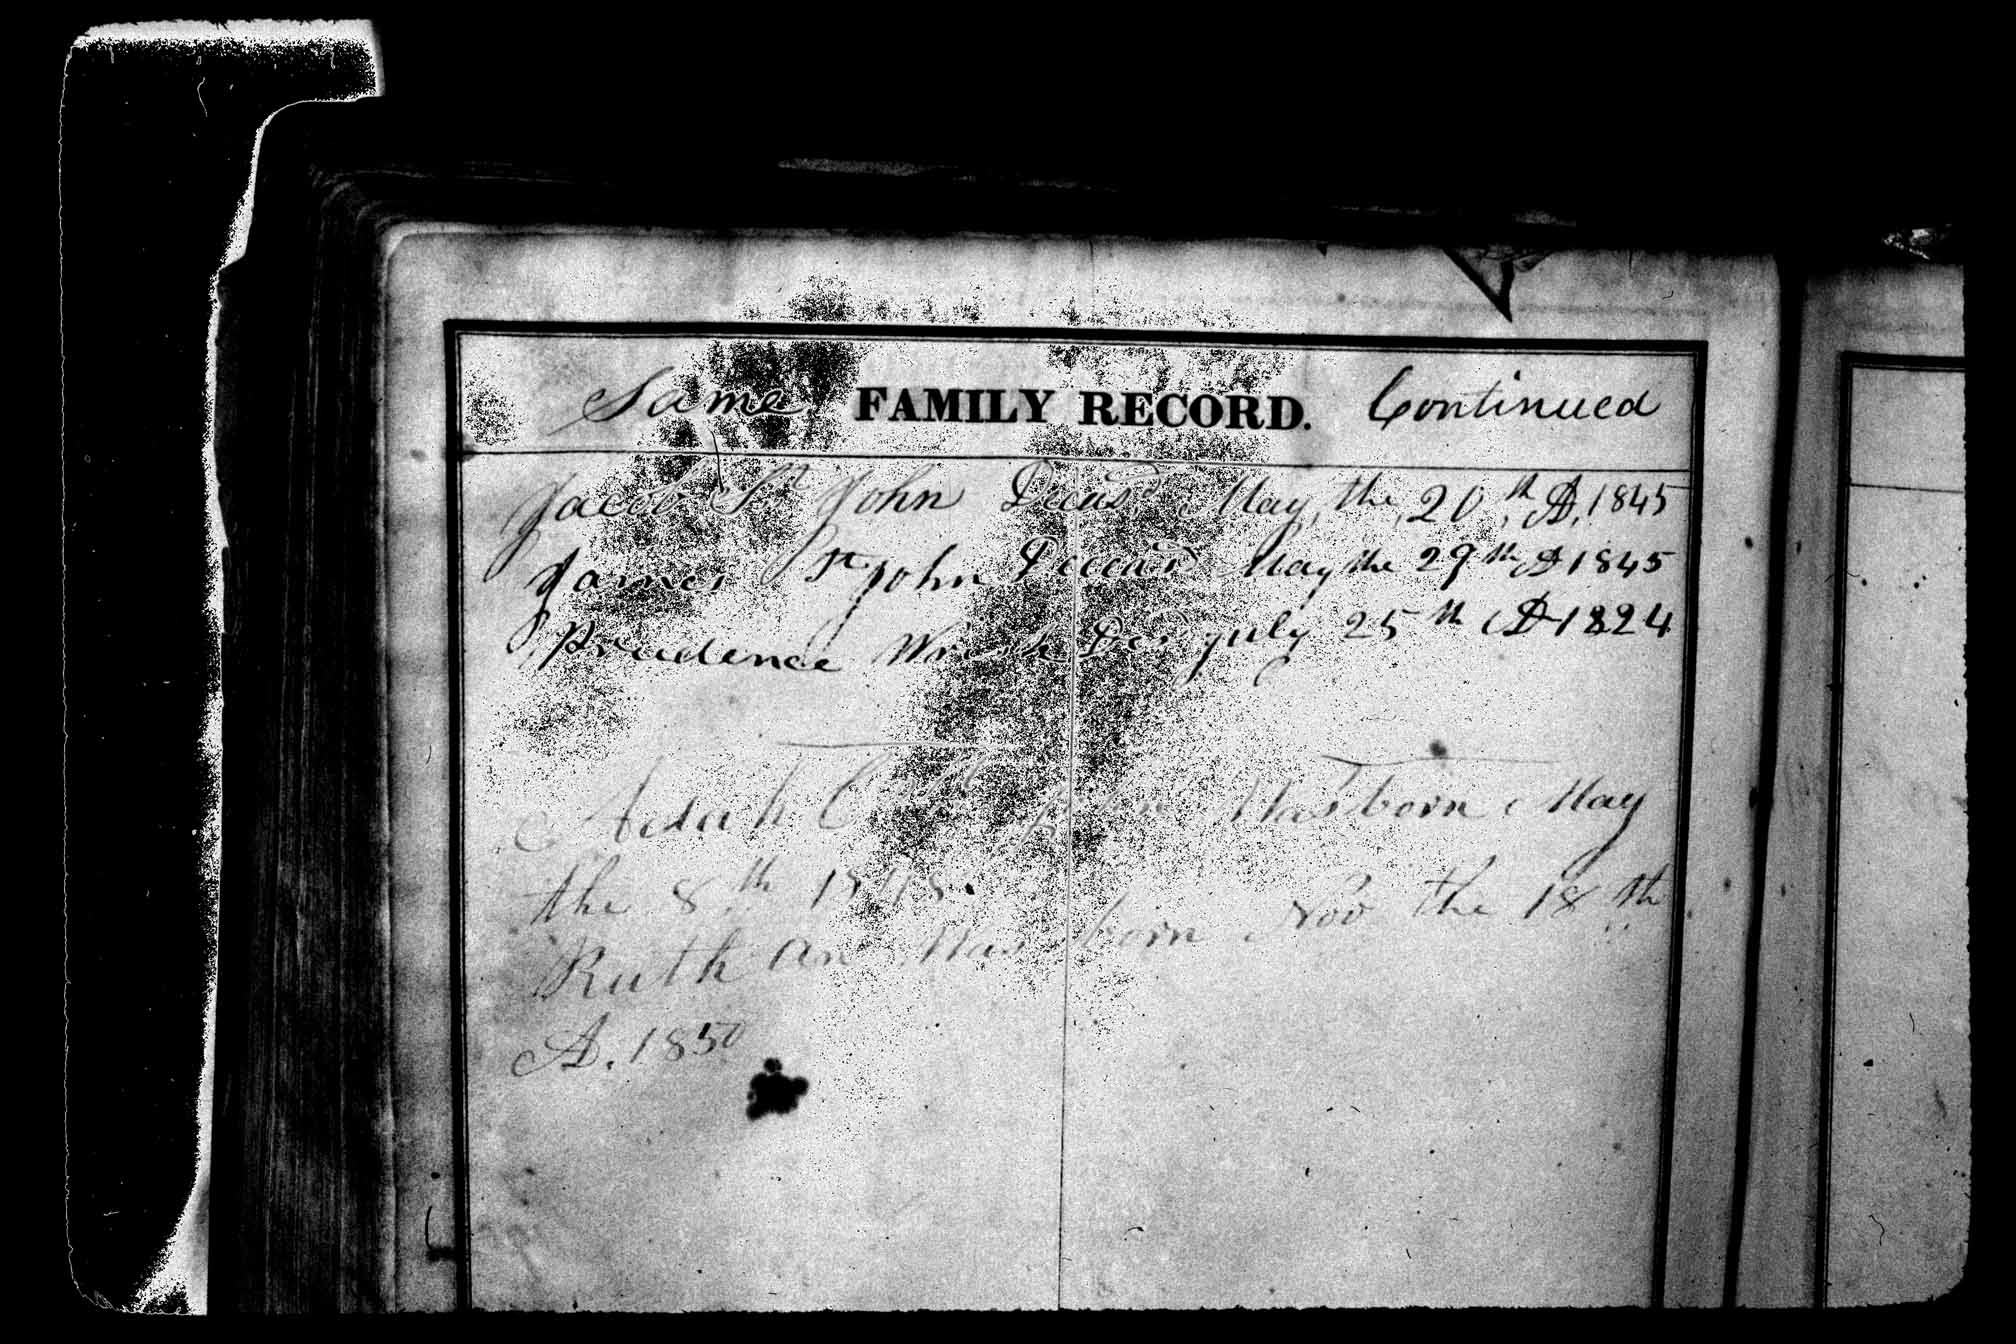 Same FAMILY RECORD. Continued
Jacob St John Deceasd May the 20th AD, 1845
James St John Deceasd May the 29th AD 1845
Prudence Decd july 25th AD 1824
Adah John Was born May
the 8th 1848.
Ruth an Was born Nov the 18th
AD. 1850